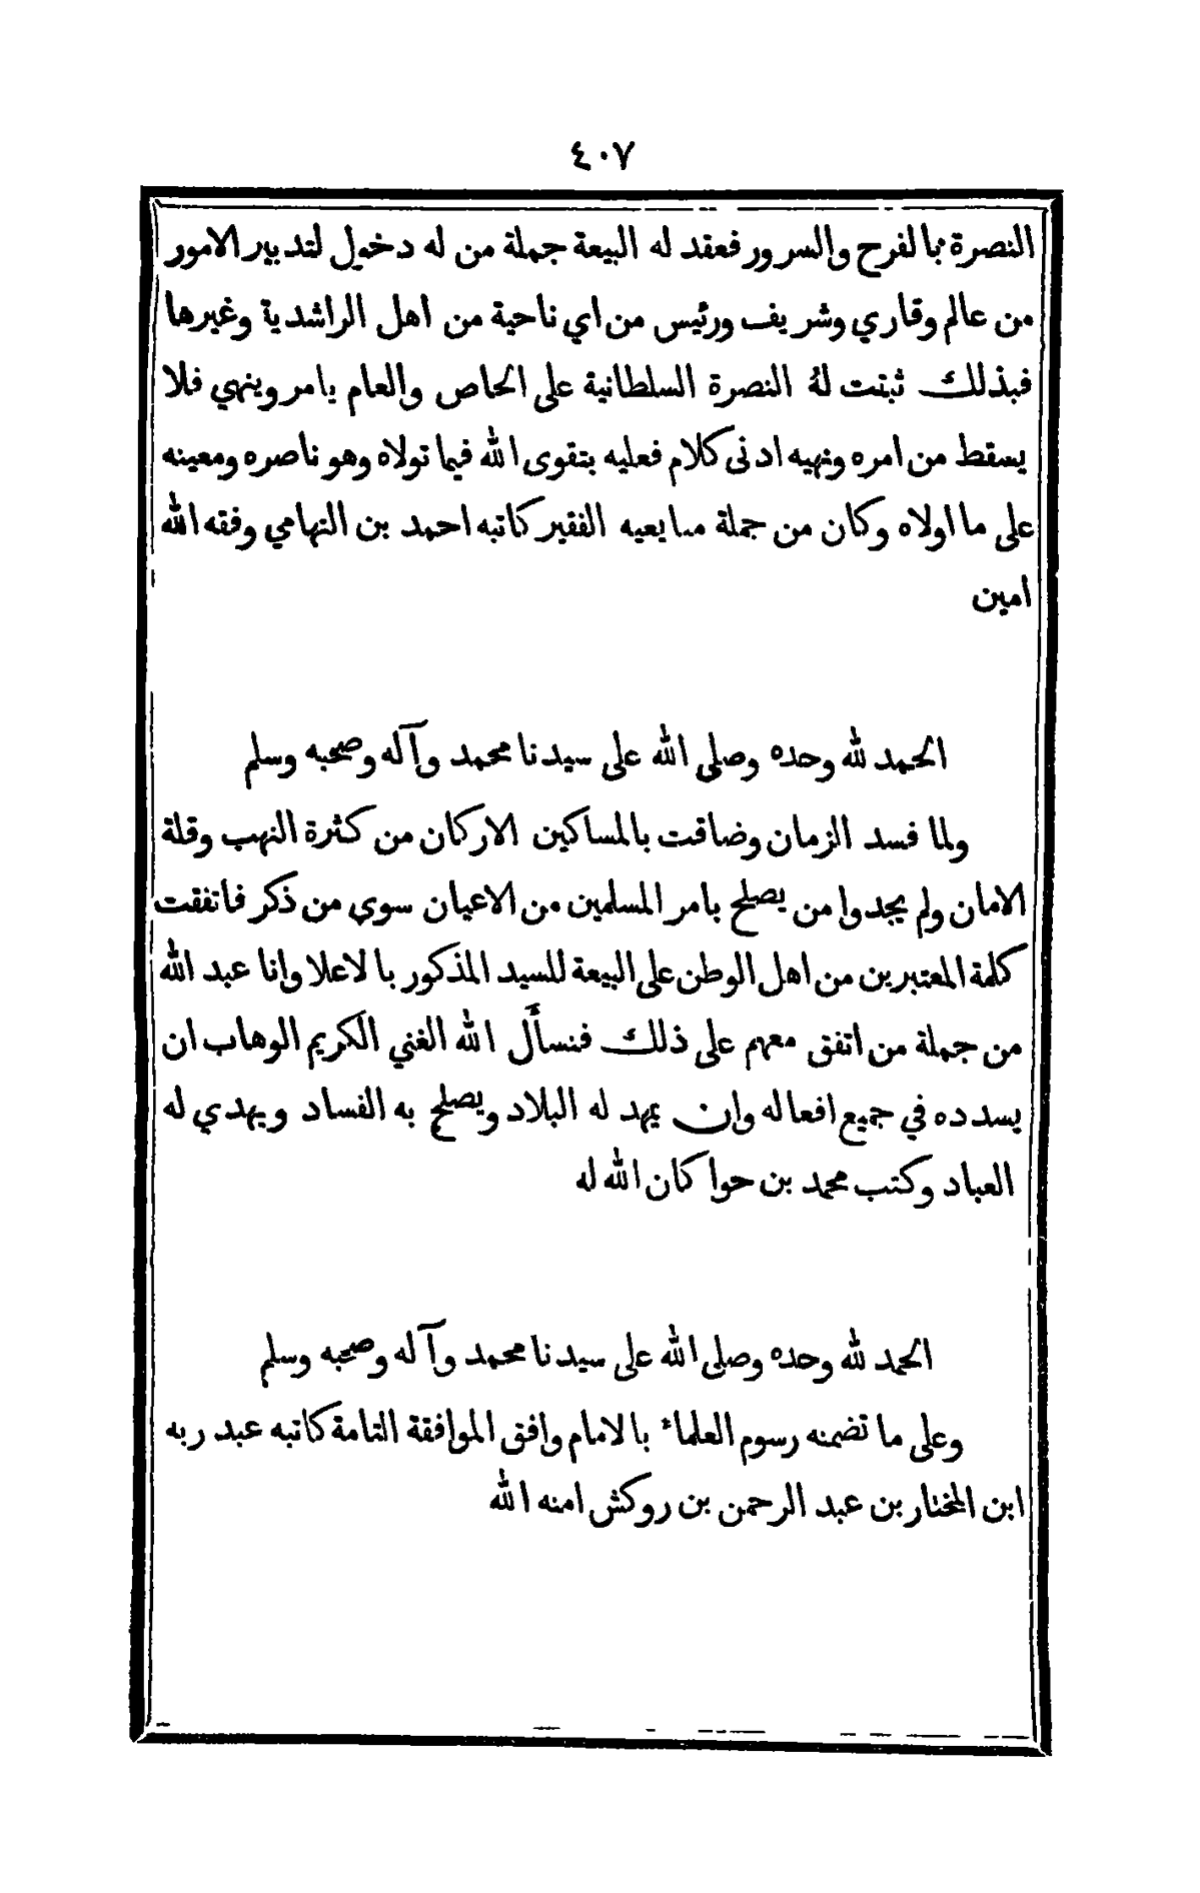 ٤٠٧
النصرة بالفرح والسرور فعقد له البيعة جملة من له دخول لتدبير الامور
من عالم وقاري وشريف ورئيس من اي ناحية من اهل الراشدية وغيرها
فبذلك ثبتت لهُ النصرة السلطانية على الخاص والعام يامر وينهي فلا
يسقط من امره ونهيه ادنى كلام فعليه بتقوى الله فيما تولاه وهو ناصره ومعينه
على ما اولاه وكان من جملة مبايعيه الفقير كاتبه احمد بن التهامي وفقه الله
امين
الحمد لله وحده وصلى الله على سيدنا محمد وآله وصحبه وسلم
ولما فسد الزمان وضاقت بالمساكين الاركان من كثرة النهب وقلة
الامان ولم يجدوا من يصلح بامر المسلمين من الاعيان سوي من ذكر فاتفقت
كلمة المعتبرين من اهل الوطن على البيعة للسيد المذكور بالاعلا وانا عبد الله
من جملة من اتفق معهم على ذلك فنسأَل الله الغني الكريم الوهاب ان
يسدده في جميع افعاله وان يمهد له البلاد ويصلح به الفساد ويهدي له
العباد وكتب محمد بن حوا كان الله له
الحمد لله وحده وصلى الله على سيدنا محمد وآله وصحبه وسلم
وعلى ما تضمنه رسوم العلماء بالامام وافق الموافقة التامة كاتبه عبد ربه
ابن المختار بن عبد الرحمن بن روكش امنه الله